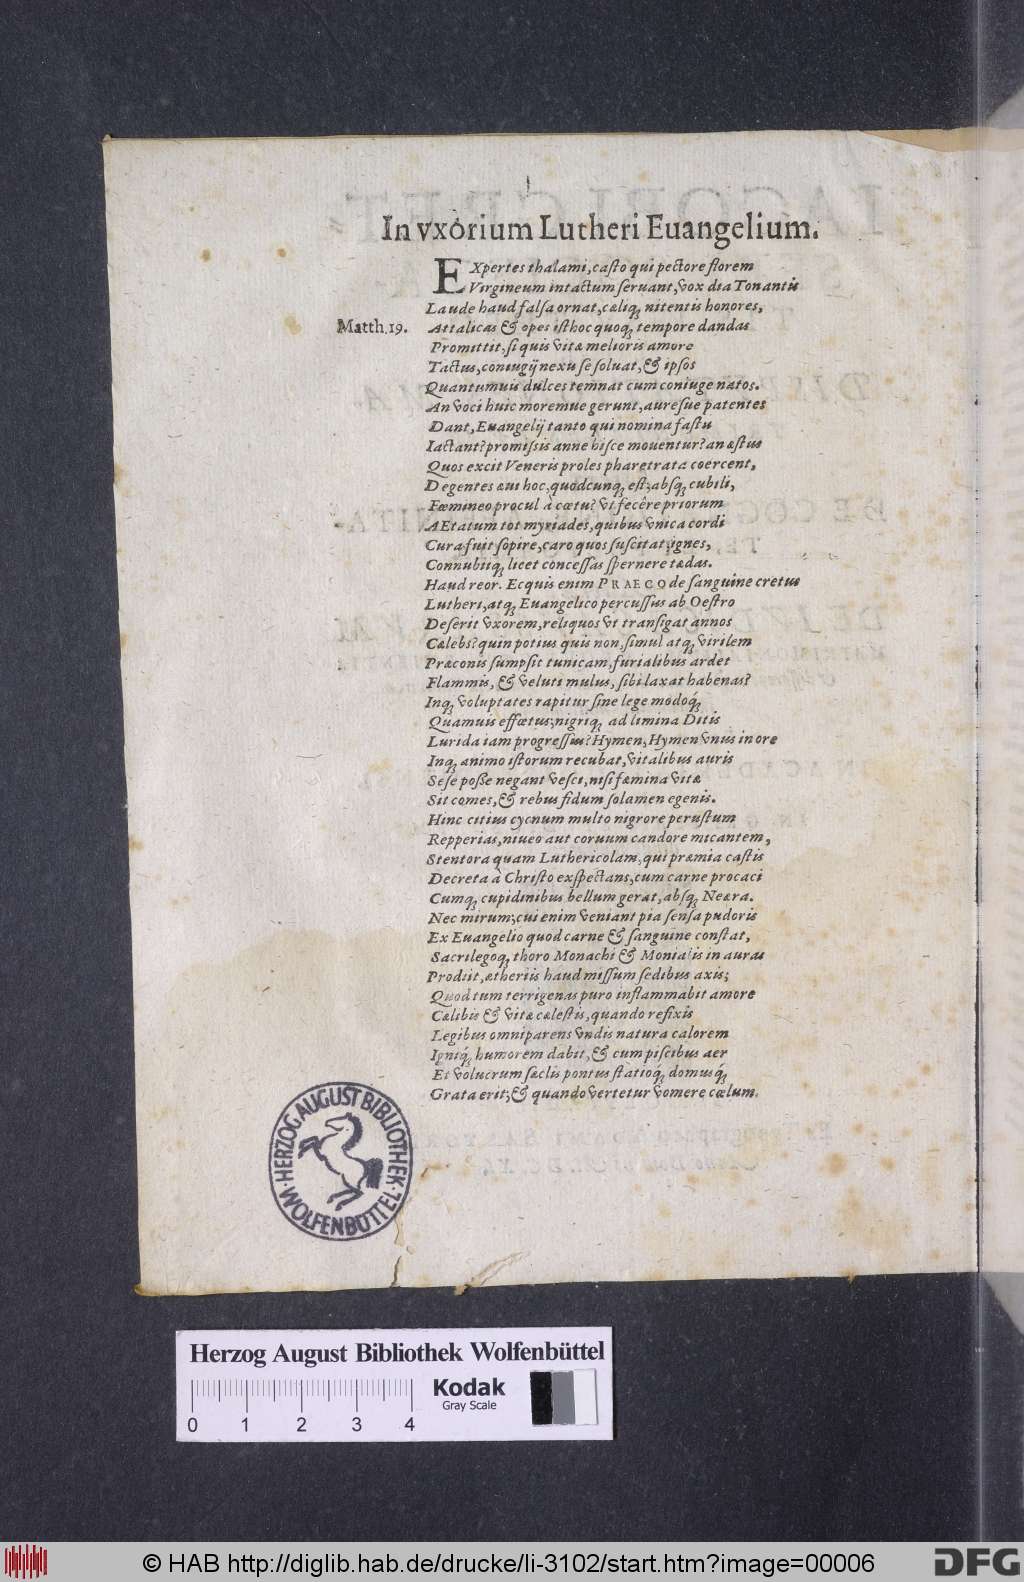 In vxorium Lutheri Euangelium.
EXpertes thalami, casto qui pectore florem
Virgineum intactum seruant, vox dia Tonantis
Laude haud falsa ornat, cæliq; nitentis honores,
Matth. 19. Attalicas & opes isthoc quoq; tempore dandas
Promittit, si quis vitæ melioris amore
Tactus, coniugij nexu se soluat, & ipsos
Quantumuis dulces temnat cum coniuge natos.
An voci huic moremue gerunt, auresue patentes
Dant, Euangelij tanto qui nomina fastu
Iactant? promissis anne hisce mouentur? an æstus
Quos excit Veneris proles pharetrata coercent,
Degentes æui hoc, quodcunq; est, absq; cubili,
Fœmineo procul à cœtu? vt fecêre priorum
AEtatum tot myriades, quibus vnica cordi
Cura fuit sopire, caro quos suscitat, ignes,
Connubiiq; licet concessas spernere tædas.
Haud reor. Ecquis enim PRAECO de sanguine cretus
Lutheri, atq; Euangelico percussus ab Oestro
Deserit vxorem, reliquos vt transigat annos
Cælebs? quin potius quis non, simul atq; virilem
Præconis sumpsit tunicam, furialibus ardet
Flammis, & veluti mulus, sibi laxat habenas?
Inq; voluptates rapitur sine lege modoq;
Quamuis effœtus; nigriq; ad limina Ditis
Lurida iam progressus? Hymen, Hymen vnus in ore
Inq; animo istorum recubat, vitalibus auris
Sese posse negant vesci, nisi fæmina vitæ
Sit comes, & rebus fidum solamen egenis.
Hinc citius cycnum multo nigrore perustum
Repperias, niueo aut coruum candore micantem,
Stentora quam Luthericolam, qui præmia castis
Decreta à Christo exspectans, cum carne procaci
Cumq; cupidinibus bellum gerat, absq; Neæra.
Nec mirum; cui enim veniant pia sensa pudoris
Ex Euangelio quod carne & sanguine constat,
Sacrilegoq; thoro Monachi & Monialis in auras
Prodiit, ætheriis haud missum sedibus axis;
Quod tum terrigenas puro inflammabit amore
Cælibis & vitæ cælestis, quando refixis
Legibus omniparens vndis natura calorem
Igniq; humorem dabit, & cum piscibus aer
Et volucrum sæclis pontus statioq; domusq;
Grata erit; & quando vertetur vomere cœlum.
HERZOG AUGUST BIBLIOTHEK
WOLFENBÜTTEL
Herzog August Bibliothek Wolfenbüttel
0 1 2 3 4
Kodak
Gray Scale
© HAB http://diglib.hab.de/drucke/li-3102/start.htm?image=00006
DFG